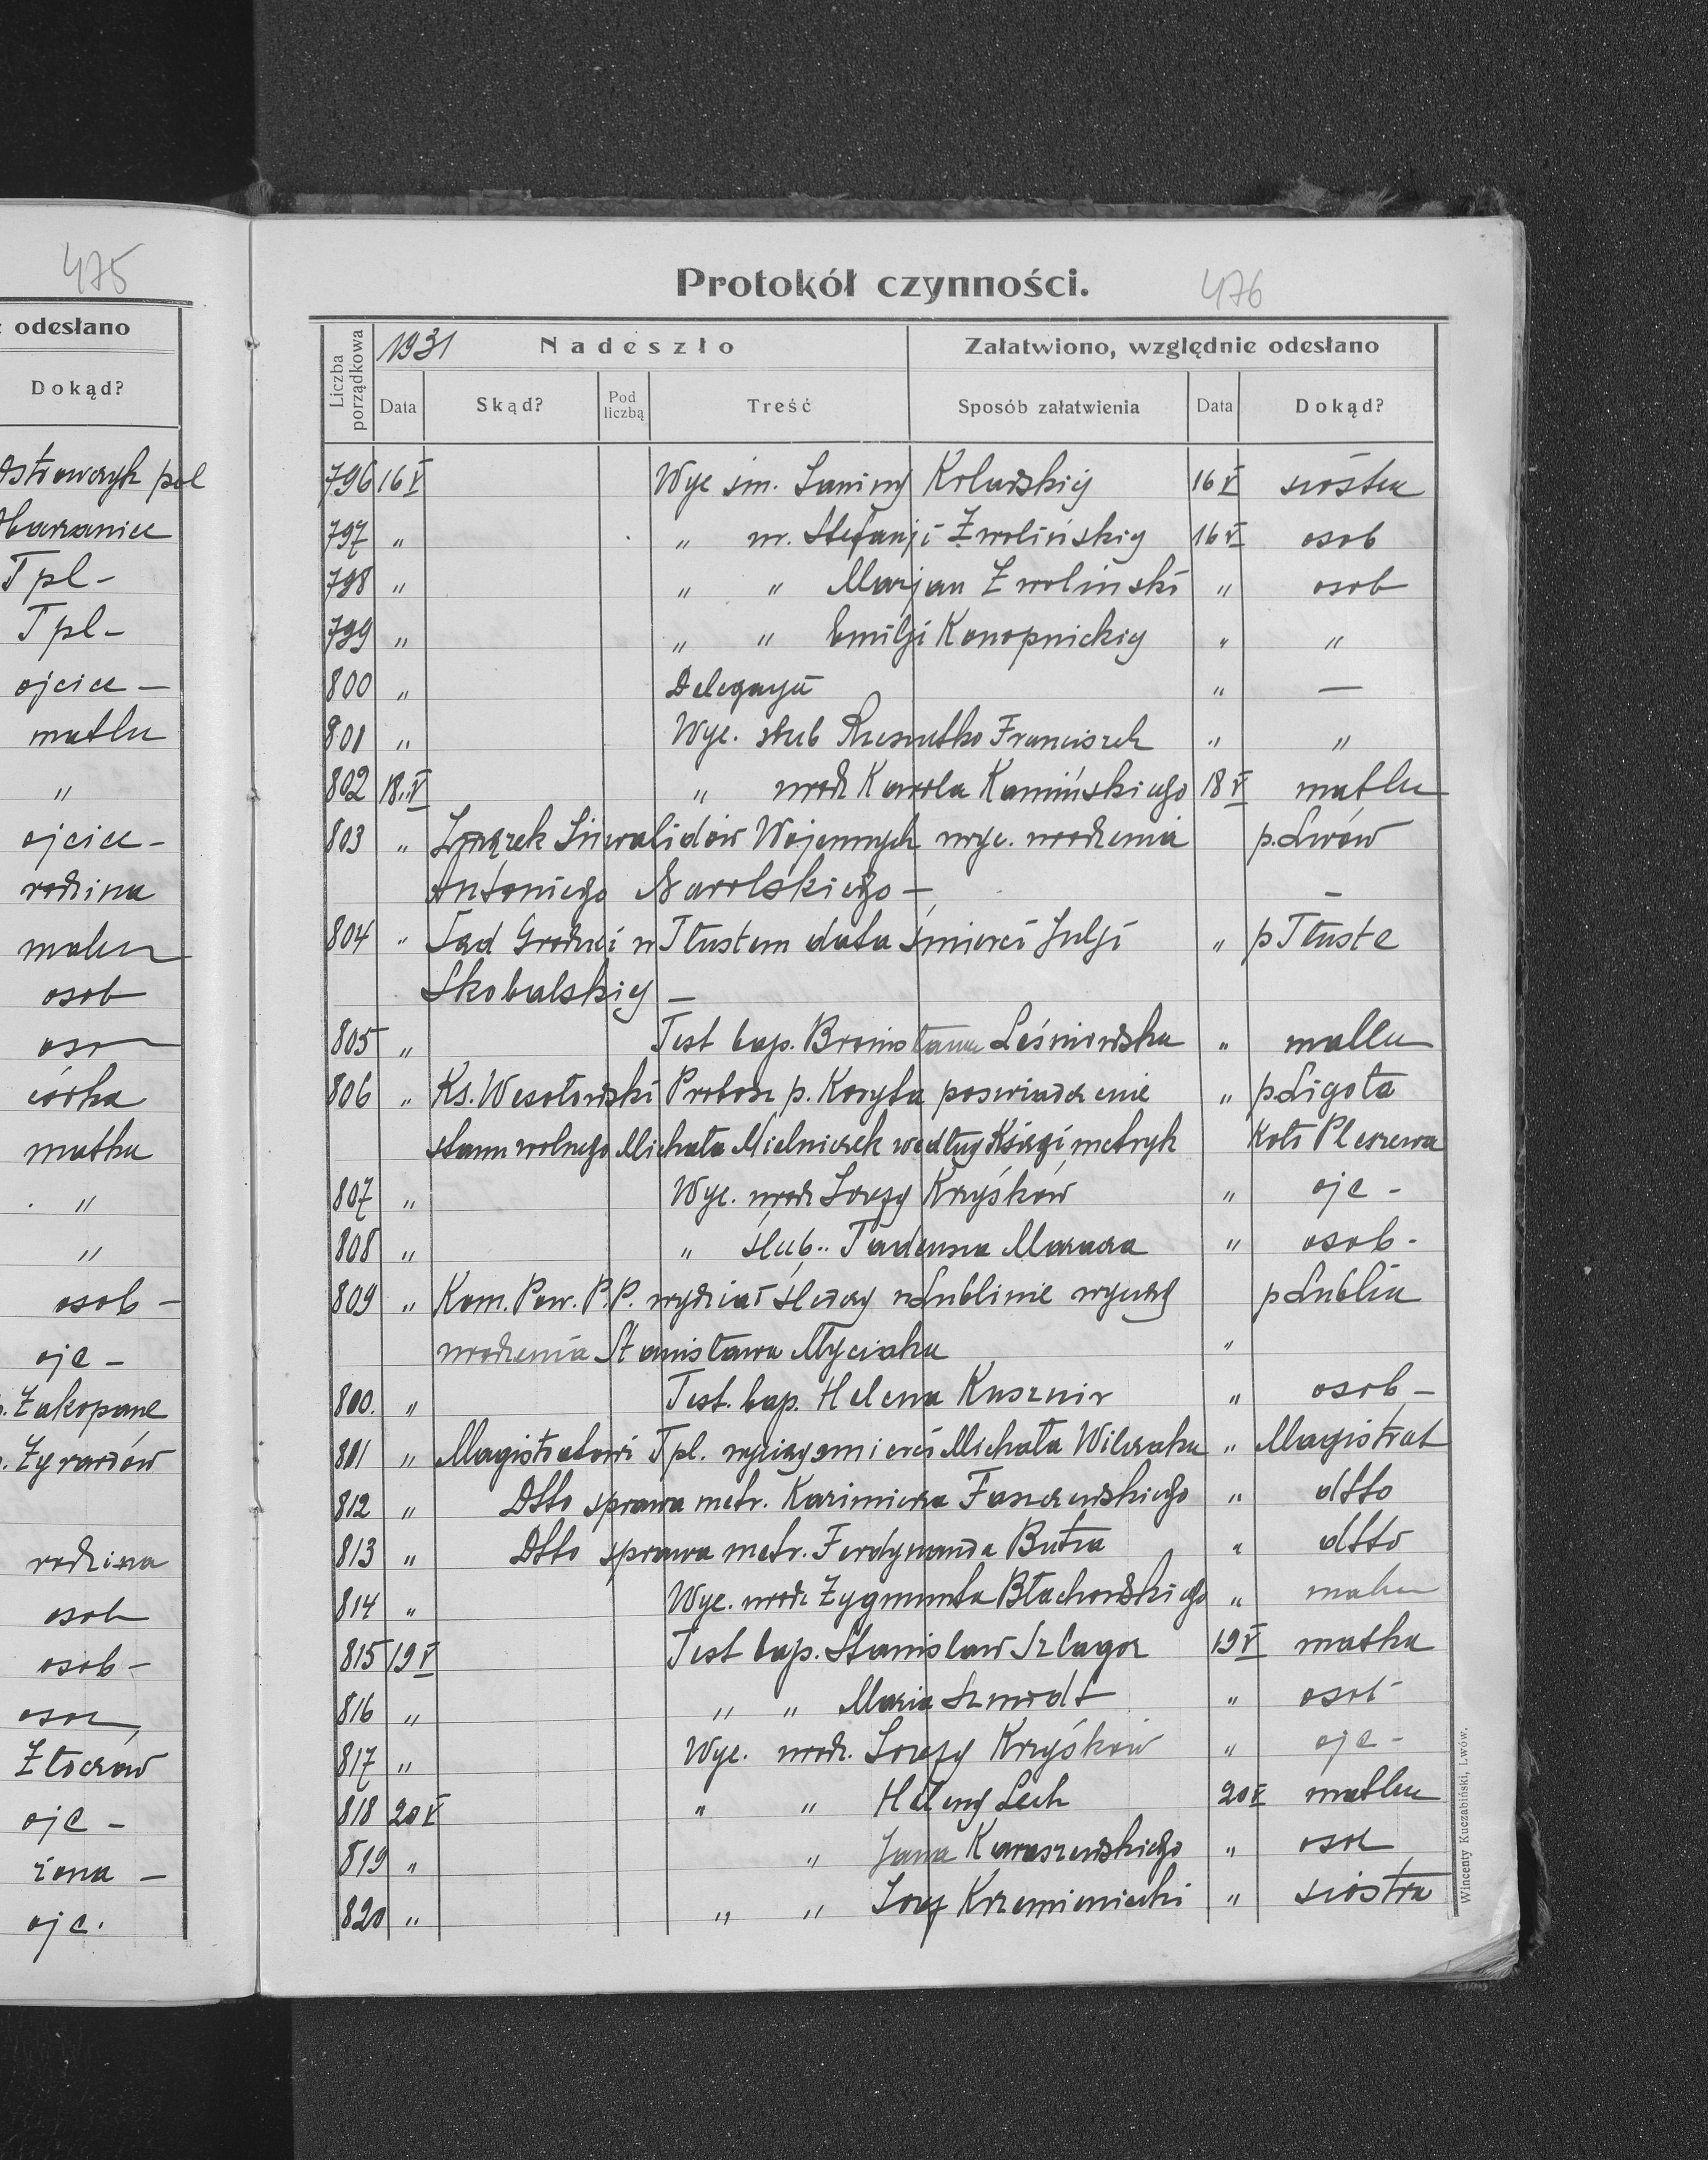 475
odesłano
Dokąd?
pol
Tpl -
Tpl -
ojciec -
matka
"
ojciec -
rodzina
matka
osob
osob
córka
matka
"
"
osob -
ojc -
p. Zakopane
p. Żyrardów
rodzina
osob
osob -
osob
Złoczów
ojc -
żona -
ojc.
Protokół czynności.
476
Liczba porządkowa
1931
Nadeszło
Załatwiono, względnie odesłano
Data
Skąd?
Pod liczbą
Treść
Sposób załatwienia
Data
Dokąd?
796 16 V Wyc śm. Janiny 16 V siostra
797 " " ur. Stefanji Zwolińskiej 16 V osob
798 " " " Marjan Zwolinski " osob
799 " " " Emilji Konopnickiej " "
800 " Delegacja " —
801 " Wyc. ślub Franciszek " "
802 18.V " urodz Karola Kamińskiego 18 V matka
803 " Związek Inwalidów Wojennych wyc. urodzenia p. Lwów
Antoniego Narolskiego — —
804 " Sąd Grodzki w Tłustem data śmierci Julji " p Tłuste
Skobalskiej —
805 " Test bap. Bronisława Leśniewska " matka
806 " Ks. Wesołowski Probosz p. Koryta poswiadczenie " p. Ligota
stanu wolnego Michała Mielniczek według Księgi metryk koło Pleszewa
807 " Wyc. urodz Józefy Krzyśków " ojc -
808 " " ślub " Tadeusza Mazura " osob -
809 " Kom. Pow. P.P. wydział śledczy w Lublinie wyciąg p Lublin
urodzenia Stanisława Myciaka "
800. " Test. bap. Helena Kusznir " osob -
801 " Magistratowi Tpl. wyciąg smierci Michała Wilczaka " Magistrat
812 " Dtto sprawa metr. Kazimierza Faszczewskiego " dtto
813 " Dtto sprawa metr. Ferdynanda Butza " dtto
814 " Wyc. urodz Zygmunta Błachowskiego " matka
815 19 V Test bap. Stanislaw Szlagor 19 V matka
816 " " " Maria Szmidt " osob
817 " Wyc. urodz. Józefy Krzyśków " ojc -
818 20 V " " Heleny Lech 20 V matka
819 " " Jana Karaszewskiego " osob
820 " " " Józef Krzemieniecki " siostra
Wincenty Kuczabiński, Lwów.